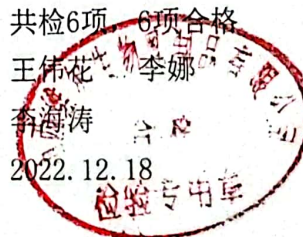 共检6项，6项合格
王伟花 李娜
李海涛
2022.12.18
检验专用章